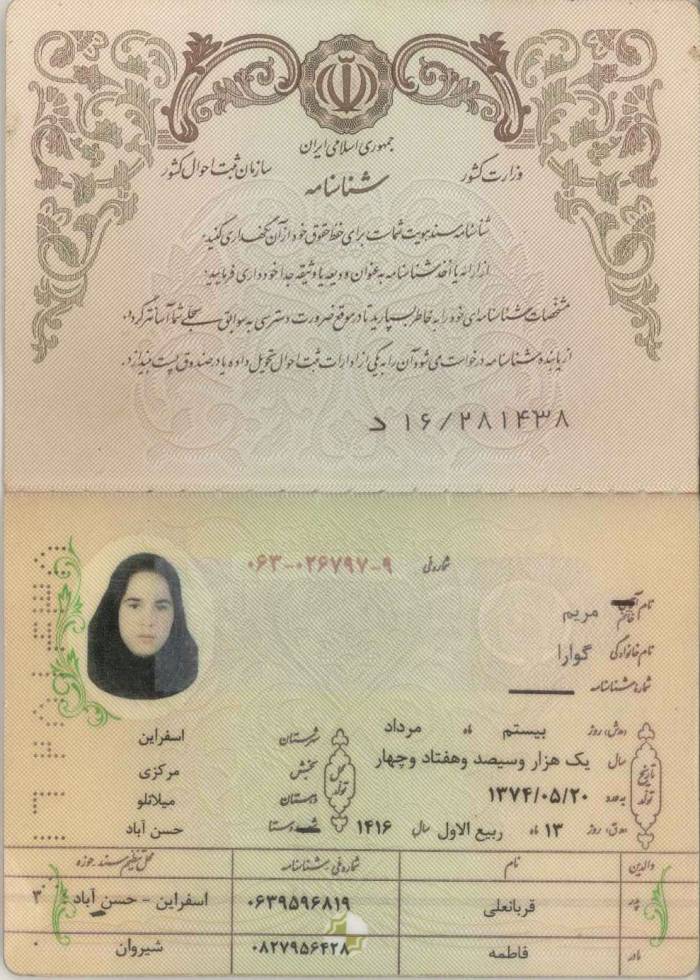 جمهوری اسلامی ایران
وزارت کشور
سازمان ثبت احوال کشور
شناسنامه
شناسنامه سند هویت شماست برای حفظ حقوق خود از آن نگهداری کنید.
از ارائه یا أخذ شناسنامه به عنوان ودیعه یا وثیقه جدا خودداری فرمایید.
مشخصات شناسنامه‌ای خود را به خاطر بسپارید تا در موقع ضرورت دسترسی به سوابق سجلی شما آسانتر گردد.
از یابنده شناسنامه درخواست می شود آن را به یکی از ادارات ثبت احوال تحویل داده یا در صندوق پست بیندازد.
د ۱۶/۲۸۱۴۳۸
شماره ملی ۰۶۳-۰۲۶۷۹۷-۹
نام خانم مریم
نام خانوادگی گوارا
شماره شناسنامه
تاریخ تولد
روز بیستم ماه مرداد
سال یک هزار وسیصد وهفتاد وچهار
۱۳۷۴/۰۵/۲۰
روز ۱۳ ماه ربیع الاول سال ۱۴۱۶
محل تولد
شهرستان اسفراین
بخش مرکزی
دهستان میلانلو
روستا حسن آباد
والدین نام شماره ملی / شناسنامه محل تنظیم سند حوزه
پدر قربانعلی ۰۶۳۹۵۹۶۸۱۹ اسفراین - حسن آباد ۳
مادر فاطمه ۰۸۲۷۹۵۶۴۲۸ شیروان ۰